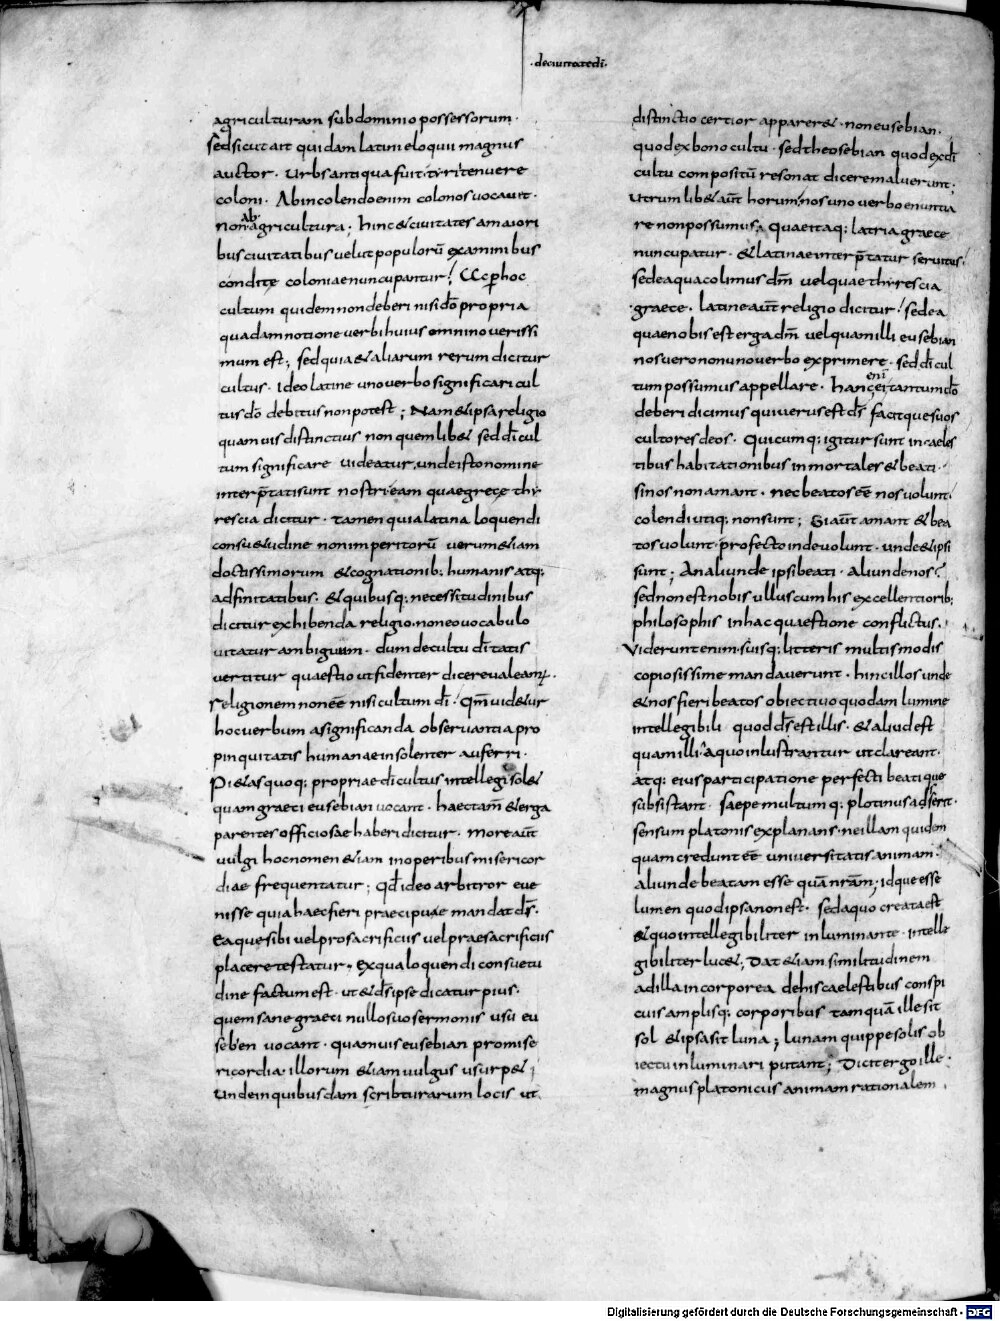 · deciuitatedī ·
agriculturam subdominio possessorum ·
sed sicut ait quidam latini eloquii magnus
auctor · Urbs antiqua fuit · tyrii tenuere
coloni · Ab incolendo enim colonos uocauit ·
non ab agricultura ; hinc & ciuitates a maiori
bus ciuitatibus uelut populorū examinibus
conditę coloniae nuncupantur ; Ac p hoc
cultum quidem non deberi nisi dō propria
quadam notione uerbi huius omnino uerissi
mum est ; sed quia & aliarum rerum dicitur
cultus · Ideo latine uno uerbo significari cul
tus dō debitus non potest ; Nam & ipsa religio
quamuis distinctius non quemlib& sed dī cul
tum significare uideatur · unde isto nomine
interp̄tati sunt nostri eam quae grece thr
rescia dicitur · tamen quia latina loquendi
consu&udine non imperitorū uerum &iam
doctissimorum & cognationib; humanis atq;
adfinitatibus · & quibusq; necessitudinibus
dicitur exhibenda religio · non eo uocabulo
uitatur ambiguum · dum de cultu dītatis
uertitur quaestio ut fidenter dicere ualeam; ·
religionem non eē nisi cultum dī · Qm̄ uid&ur
hoc uerbum a significanda obseruantia pro
pinquitatis humanae insolenter auferri ·
Pi&as quoq; propriae dī cultus intellegi sol&
quam graeci eusebian uocant · haec tam̄ & erga
parentes officiosae haberi dicitur · more aūt
uulgi hoc nomen &iam in operibus misericor
diae frequentatur ; qđ ideo arbitror eue
nisse quia haec fieri praecipuae mandat ds̄ ·
Eaque sibi uel pro sacrificiis uel prae sacrificiis
placere testatur · ex qua loquendi consuetu
dine factum est · ut & ds̄ ipse dicatur pius ·
quem sane graeci nullo suo sermonis usu eu
seben uocant · quamuis eusebian pro mise
ricordia · illorum &iam uulgus usurp& ;
Unde in quibusdam scribturarum locis ut
distinctio certior apparer& · non eusebian ·
quod ex bono cultu · sed theosebian quod ex dī
cultu compositū resonat dicere maluerunt ;
Utrum lib& aūt horum · nos uno uerbo enuntia
re non possumus · quae itaq; latria graece
nuncupatur · & latinae interp̄tatur seruitus ·
sed ea qua colimus dm̄ uel quae thrrescia
· graece · latine aūt religio dicitur · sed ea
quae nobis est erga dm̄ uel quam illi eusebian
nos uero non uno uerbo exprimere · sed dī cul
tum possumus appellare · hanc ei enī tantum dō
deberi dicimus qui uerus est ds̄ facitque suos
cultores deos · Quicumq; igitur sunt in caeles
tibus habitationibus inmortales & beati ·
si nos non amant · nec beatos eē nos uolunt ·
colendi utiq; non sunt ; Si aūt amant & bea
tos uolunt · profecto inde uolunt · unde & ipsi
sunt ; An aliunde ipsi beati · aliunde nos ·
sed non est nobis ullus cum his excellentiorib;
philosophis in hac quaestione conflictus ·
Viderunt enim · suisq; litteris multis modis
copiosissime mandauerunt · hinc illos unde
& nos fieri beatos obiectiuo quodam lumine
intellegibili quod ds̄ est illis · & aliud est
quam illi · a quo inlustrantur ut clareant ·
atq; eius participatione perfecti beatique
subsistant · saepe multumq; plotinus adserit ·
sensum platonis explanans · ne illam quidem
quam credunt eē uniuersitatis animam ·
aliunde beatam esse quā nrām ; idque esse
lumen quod ipsa non est · sed a quo creata est
& quo intellegibiliter inluminante · intelle
gibiliter luc& ; Dat &iam similitudinem
ad illa incorporea de his caelestibus conspi
cuis amplisq; corporibus tamquā ille sit
sol & ipsa sit luna ; lunam quippe solis ob
iectu inluminari putant ; Dicit ergo ille ·
magnus platonicus animam rationalem ·
Digitalisierung gefördert durch die Deutsche Forschungsgemeinschaft - DFG